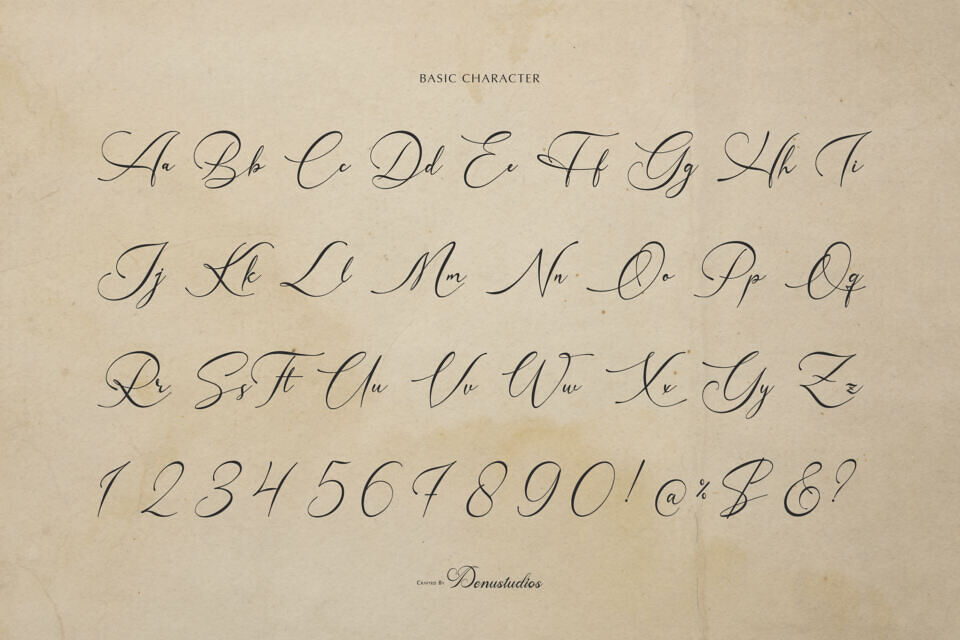 BASIC CHARACTER
Aa Bb Cc Dd Ee Ff Gg Hh Ii
Jj Kk Ll Mm Nn Oo Pp Qq
Rr Ss Tt Uu Vv Ww Xx Yy Zz
1 2 3 4 5 6 7 8 9 0 ! @ % $ & ?
CRAFTED BY Denustudios